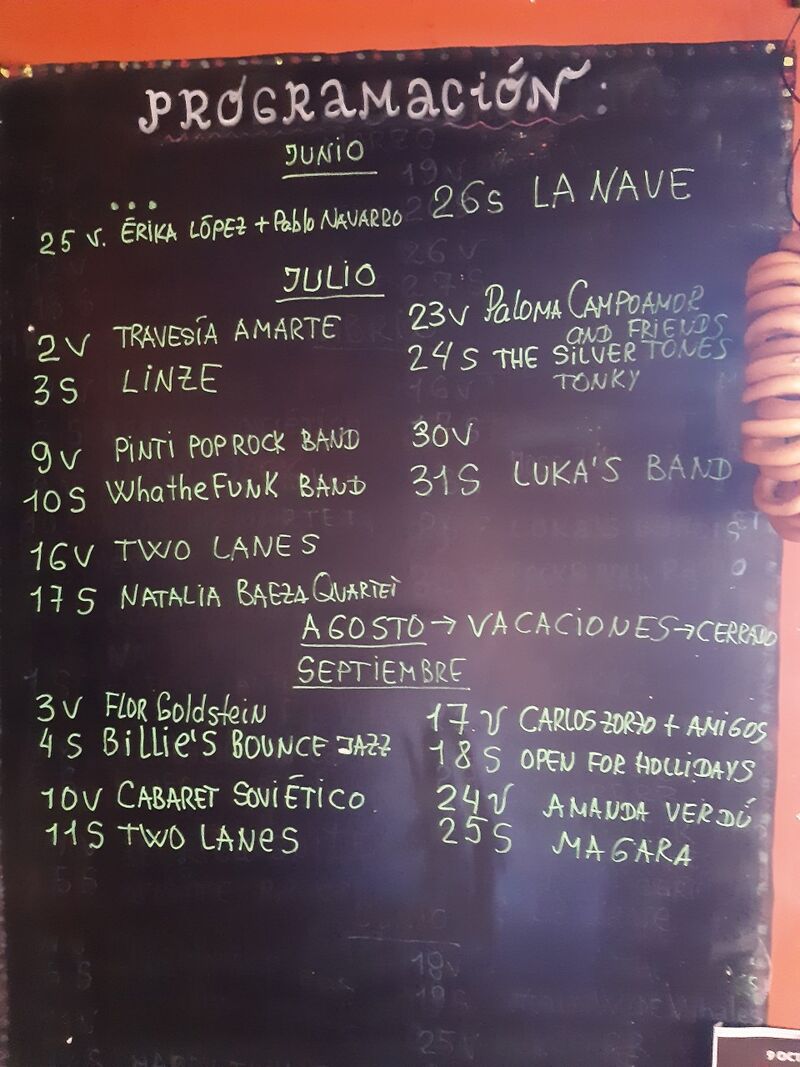 PROGRAMACIÓN:
JUNIO
...
25 V. ÉRIKA LÓPEZ + Pablo NAVARRO
26S LA NAVE
JULIO
2V TRAVESÍA AMARTE
3S LINZE
9V PINTI POP ROCK BAND
10S WhatheFUNK BAND
16V TWO LANES
17S NATALIA BAEZA QUARTET
23V PALOMA CAMPOAMOR
AND FRIENDS
24S THE SILVER TONES
TONKY
30V
31S LUKA'S BAND
AGOSTO → VACACIONES → CERRADO
SEPTIEMBRE
3V FLOR Goldstein
4S Billie'S BOUNCE JAZZ
10V CABARET SOVIÉTICO.
11S TWO LANES
17.V CARLOS ZORZO + AMIGOS
18S OPEN FOR HOLLIDAYS
24V AMANDA VERDÚ
25S MAGARA
9 OCT